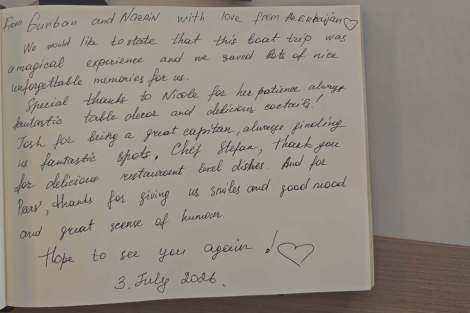 From Gunban and Nazrin with love from Azerbaijan♡
We would like to state that this boat trip was
a magical experience and we saved lots of nice
unforgettable memories for us.
Special thanks to Nicole for her patience, always
fantastic table decor and delicious coctails!
Josh for being a great capitan, always finding
us fantastic spots. Chef Stefan, thank you
for delicious restaurant level dishes. And for
thanks for giving us smiles and good mood
and great scense of humour.
Hope to see you again! ♡
3 July 2026.